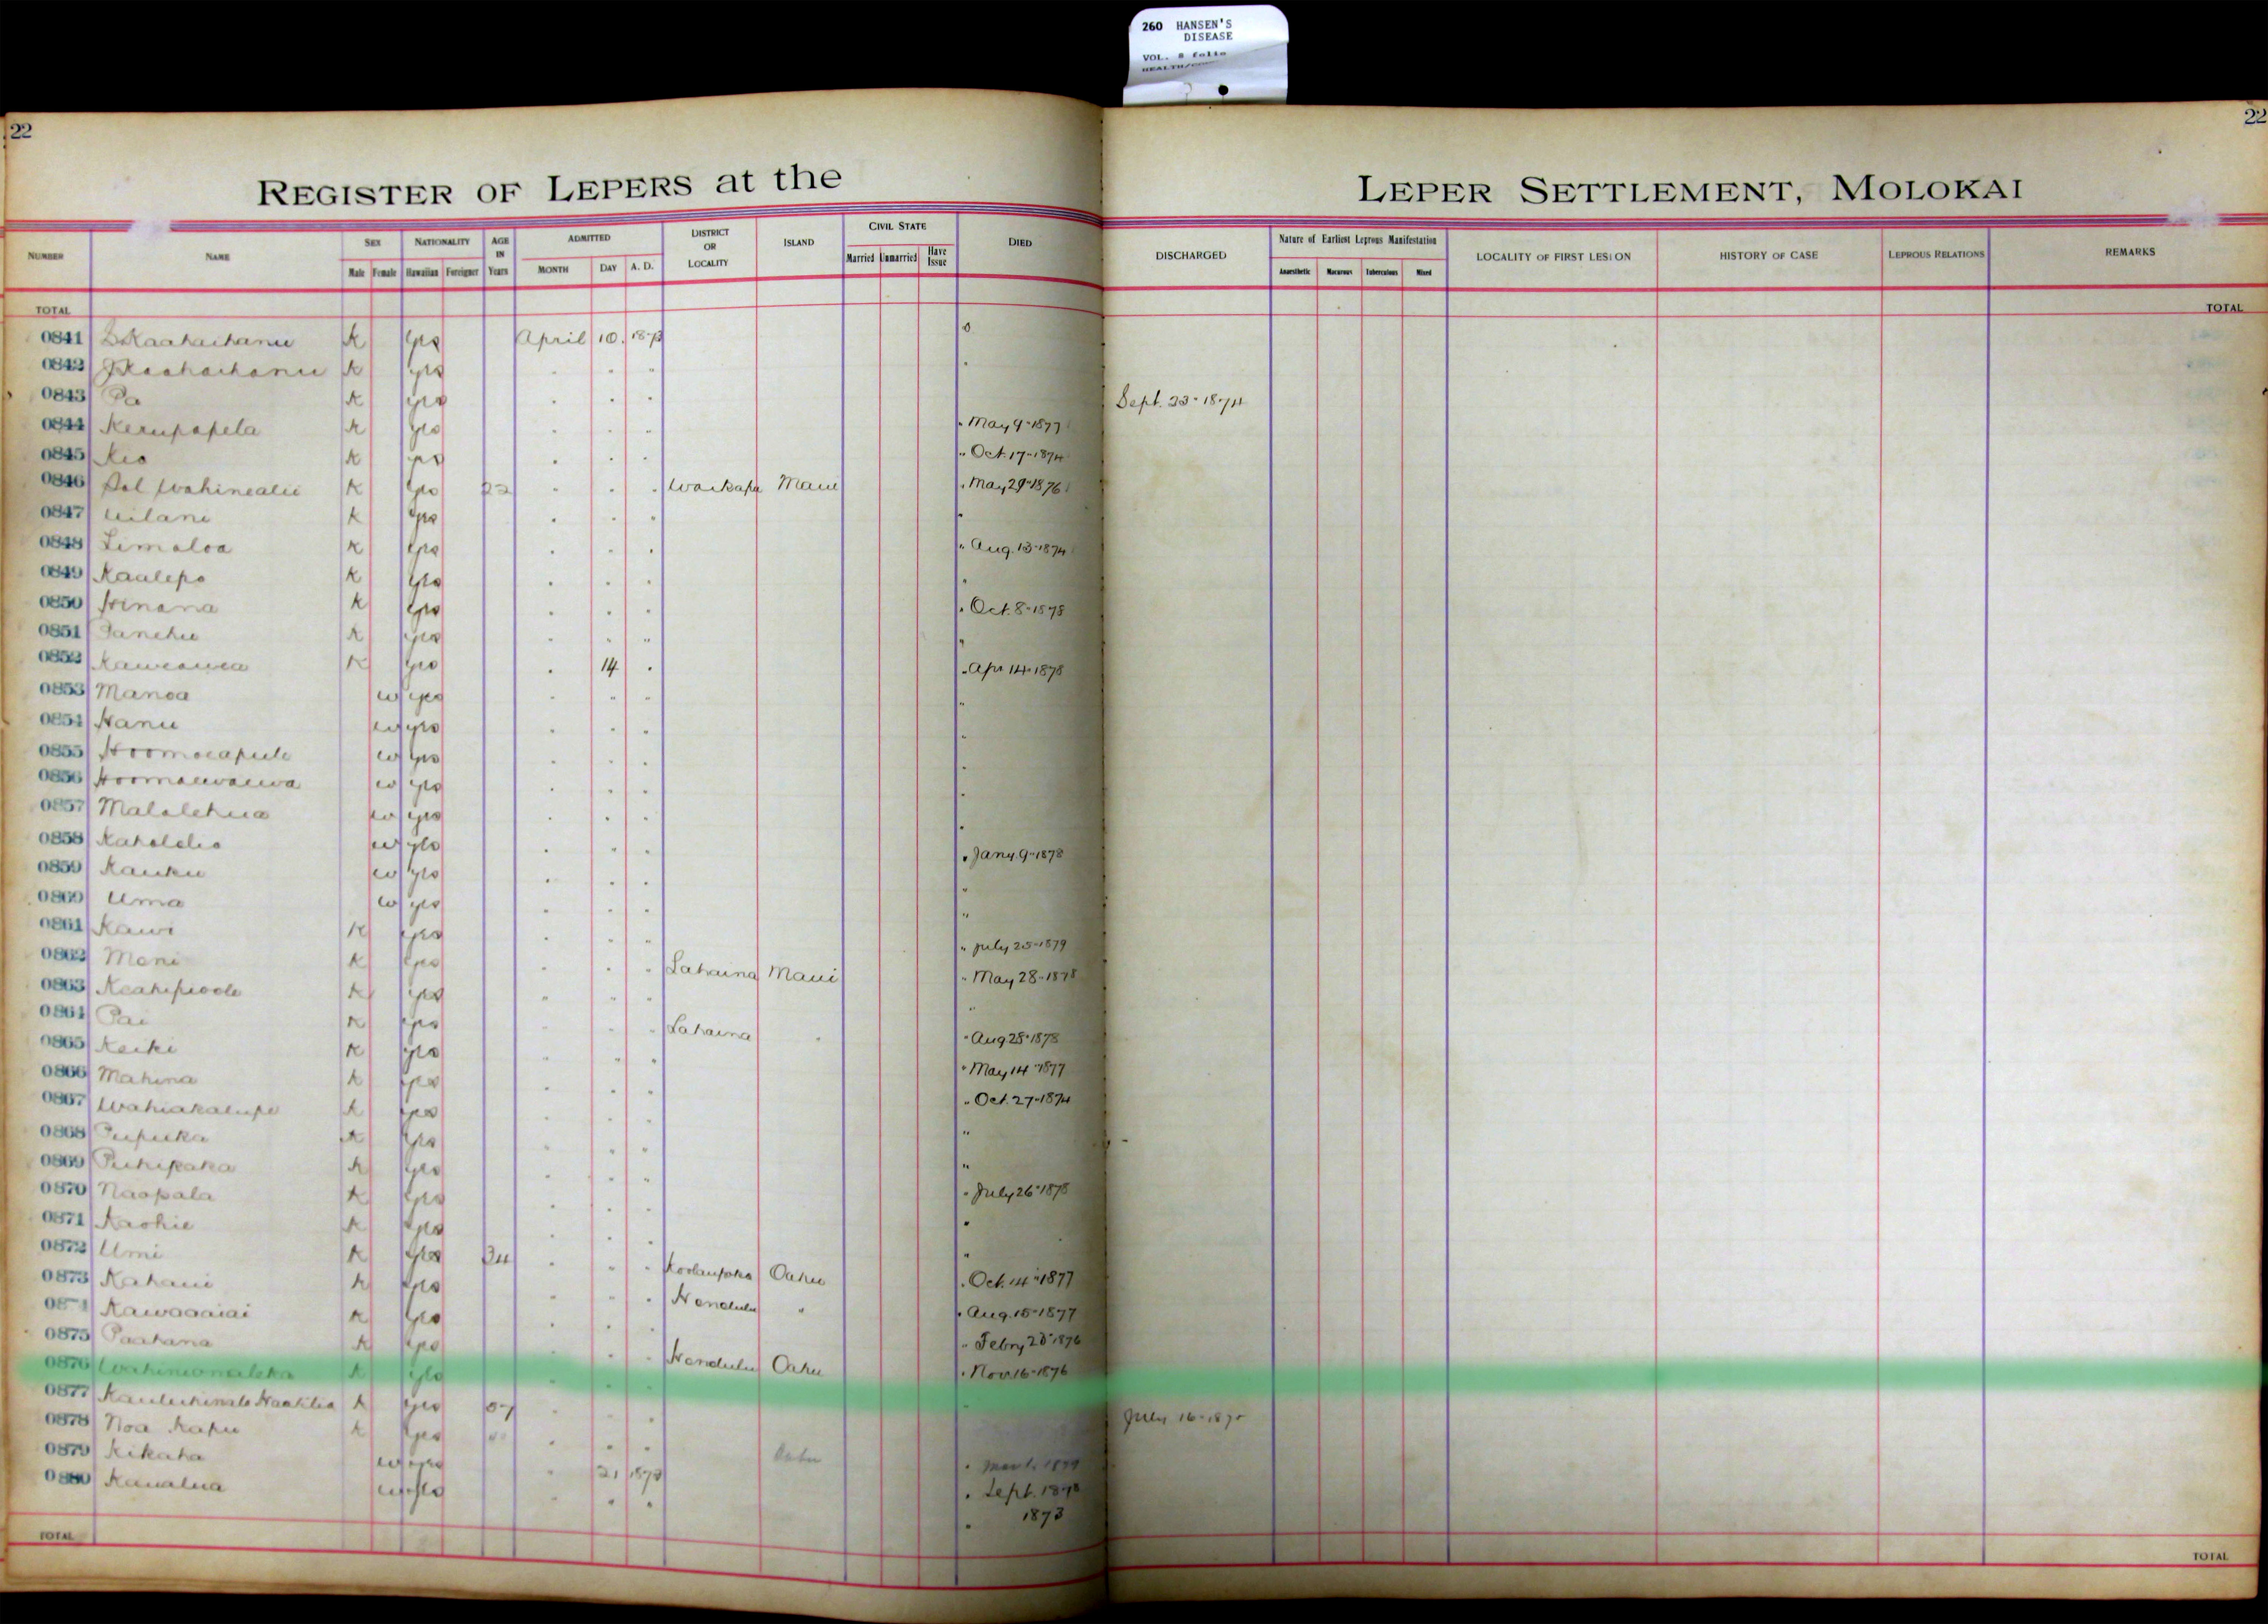 260 HANSEN'S
DISEASE
VOL. 8 folio
22
22
REGISTER OF LEPERS at the
LEPER SETTLEMENT, MOLOKAI
NUMBER NAME SEX Male Female NATIONALITY Hawaiian Foreigner AGE IN Years ADMITTED MONTH DAY A. D. DISTRICT OR LOCALITY ISLAND CIVIL STATE Married Unmarried Have Issue DIED DISCHARGED Nature of Earliest Leprous Manifestation Anaesthetic Macurous Tuberculous Mixed LOCALITY OF FIRST LESION HISTORY OF CASE LEPROUS RELATIONS REMARKS
TOTAL TOTAL
0841 K yes April 10. 1873
0842 K yes
0843 Pa K yes Sept. 23-1874
0844 K yes May 9-1877
0845 Kio K yes Oct. 17-1874
0846 Sol Wahinealii K yes 22 Waikapu Maui May 29-1876
0847 Uilani K yes
0848 Limaloa K yes Aug. 13-1874
0849 Kaulepo K yes
0850 Hinana K yes Oct. 8-1878
0851 K yes
0852 Kaweawea K yes 14 Apr 14-1878
0853 Manoa w yes
0854 Hanu w yes
0855 w yes
0856 Hoomauwauwa w yes
0857 Malalehua w yes
0858 Kaholelio w yes Jany. 9-1878
0859 Kauku w yes
0860 Uma w yes
0861 Kawi K yes July 25-1879
0862 K yes Lahaina Maui May 28-1878
0863 K yes
0864 Pai K yes Lahaina Aug 28-1878
0865 Keiki K yes May 14-1877
0866 Mahina K yes Oct. 27-1874
0867 Wahiakalupe K yes
0868 Pupuka K yes
0869 Puhipaka K yes July 26-1878
0870 Naopala K yes
0871 Kaohie K yes
0872 Umi K yes 34 Koolaupoko Oahu Oct. 14-1877
0873 Kahaui K yes Honolulu Aug. 15-1877
0874 Kawaaaiai K yes Febry 28-1876
0875 Paahana K yes Honolulu Oahu Nov. 16-1876
0876 K yes
0877 K yes July 16-187
0878 Noa Kapu K yes Oahu 1879
0879 Kikaha w yes 21 1873 Sept. 1878
0880 Kaualua w yes 1873
TOTAL TOTAL